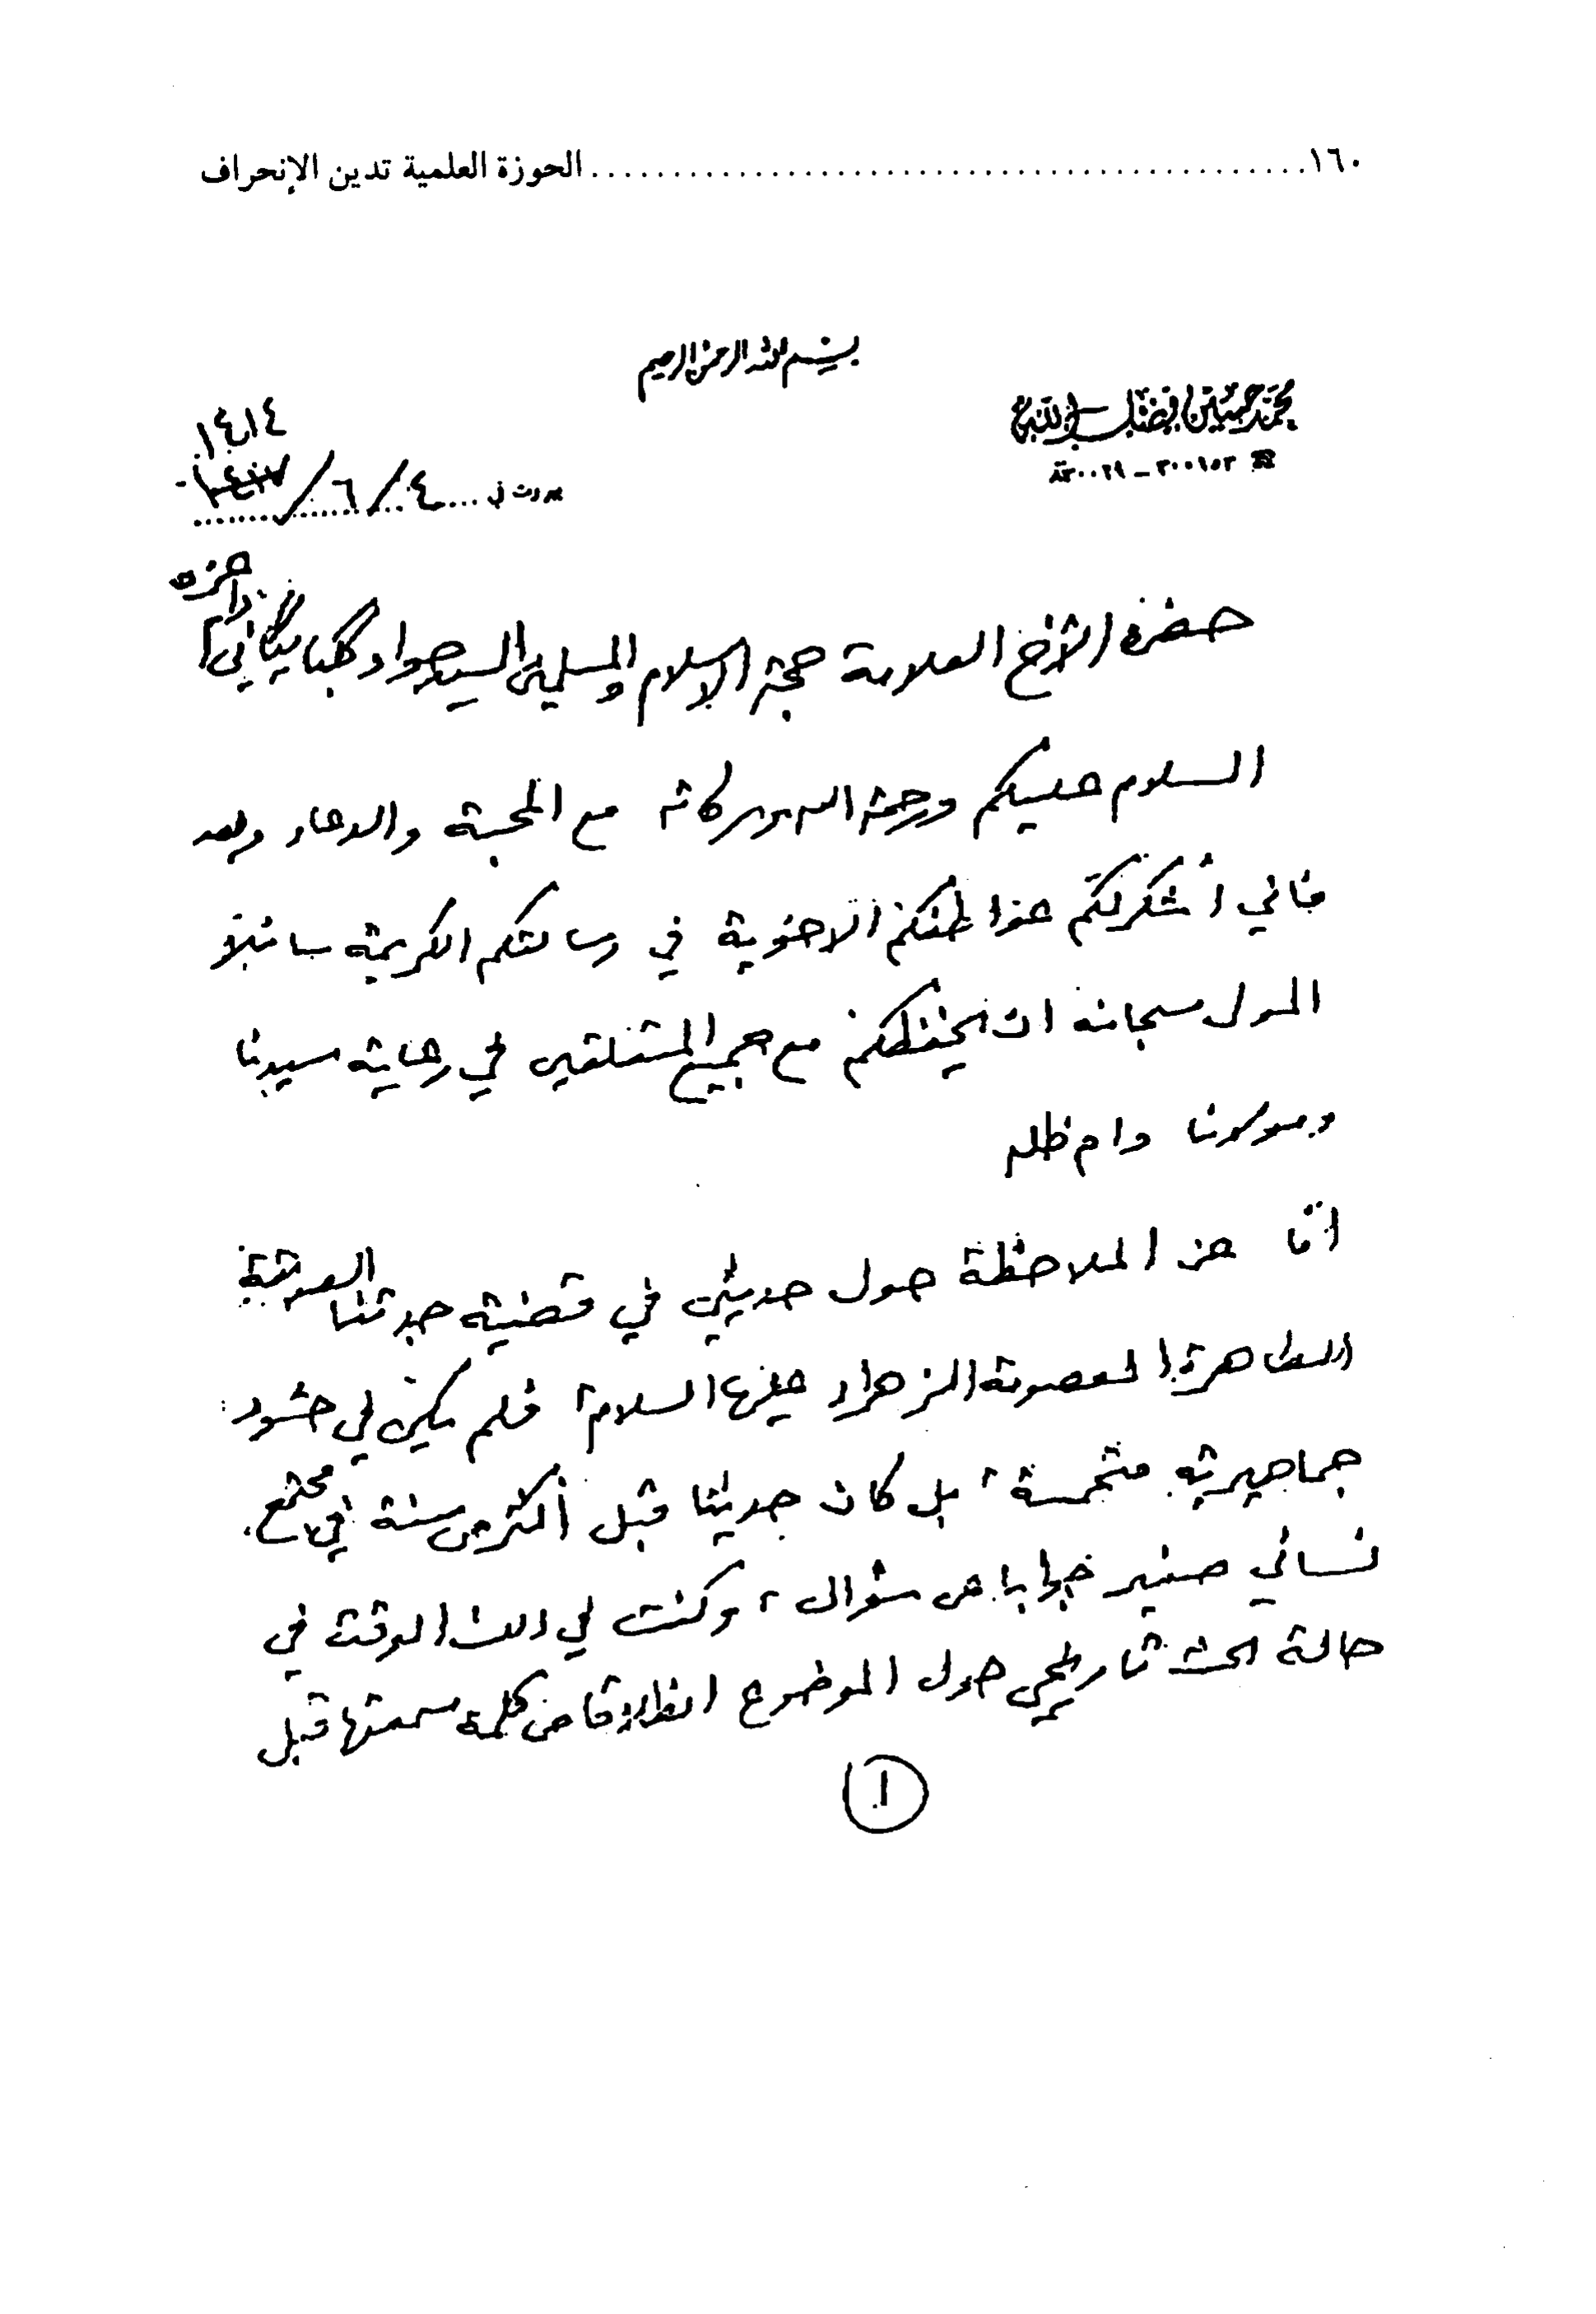 ١٦٠........................................الحوزة العلمية تدين الإنحراف
بسم الله الرحمن الرحيم
محمد حسين فضل الله
١٤١٤
بيروت في ٤/٦/١٤١٧
حضرة الأخ العلامة حجة الاسلام والمسلمين السيد جواد گلبايگاني دام عزه
السلام عليكم ورحمة الله وبركاته مع المحبة والدعاء وبعد
فاني أشكر لكم عواطفكم الاخوية في رسالتكم الكريمة سائلاً
المولى سبحانه ان يحفظكم مع جميع المتعلقين في رعاية سيدنا
ومولانا دام ظله
امّا عن الملاحظة حول حديثي في قضية جدتنا الصديقة
الطاهرة المعصومة الزهراء عليها السلام، فلم يكن في حشود
جماهيرية متحمسة، بل كان حديثا قبل أكثر من سنة في مجتمع
نسائي صغير جوابا عن سؤال، وكنت في ذلك الوقت في
حالة بحث تاريخي حول الموضوع انطلاقا من كلمة سمعتها قبل
١